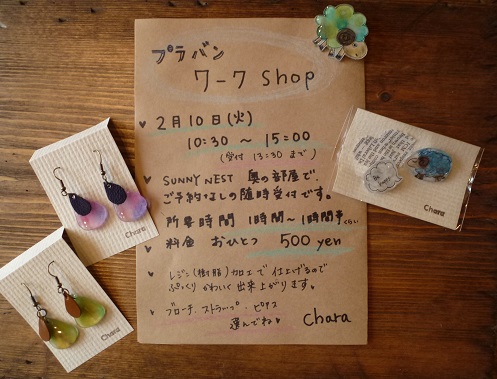 プラバン
ワーク Shop
♥ 2月10日(火)
10:30 〜 15:00
(受付 13:30 まで)
♥ SUNNY NEST 奥の部屋で、
ご予約なしの随時受付です。
所要時間 1時間〜1時間半くらい
♥ 料金 おひとつ 500 yen
♥ レジン(樹脂)加工で仕上げるので
ぷっくり かわいく 出来上がります。
♥ ブローチ・ストラップ・ピアス
選んでね♥ Chara
Chara
Chara
Chara